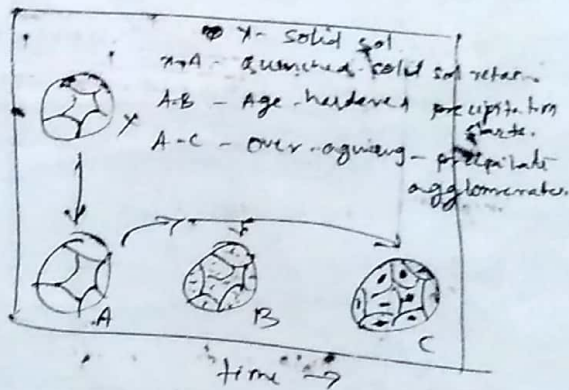 X - solid sol
X-A - quenched solid sol retain
A-B - Age-hardened precipitation
starts.
A-C - over-aguing - precipitate
agglomerates.
X
A
B
C
time →